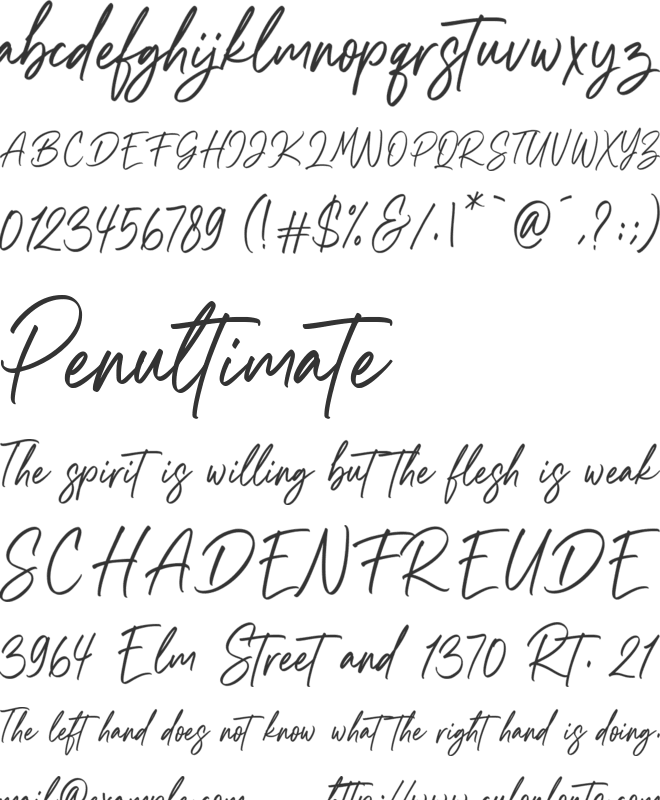 abcdefghijklmnopqrstuvwxyz
ABCDEFGHIJKLMNOPQRSTUVWXYZ
0123456789 (!#$%&/.\*`@´,?:;)
Penultimate
The spirit is willing but the flesh is weak
SCHADENFREUDE
3964 Elm Street and 1370 RT. 21
The left hand does not know what the right hand is doing.
mail@example.com